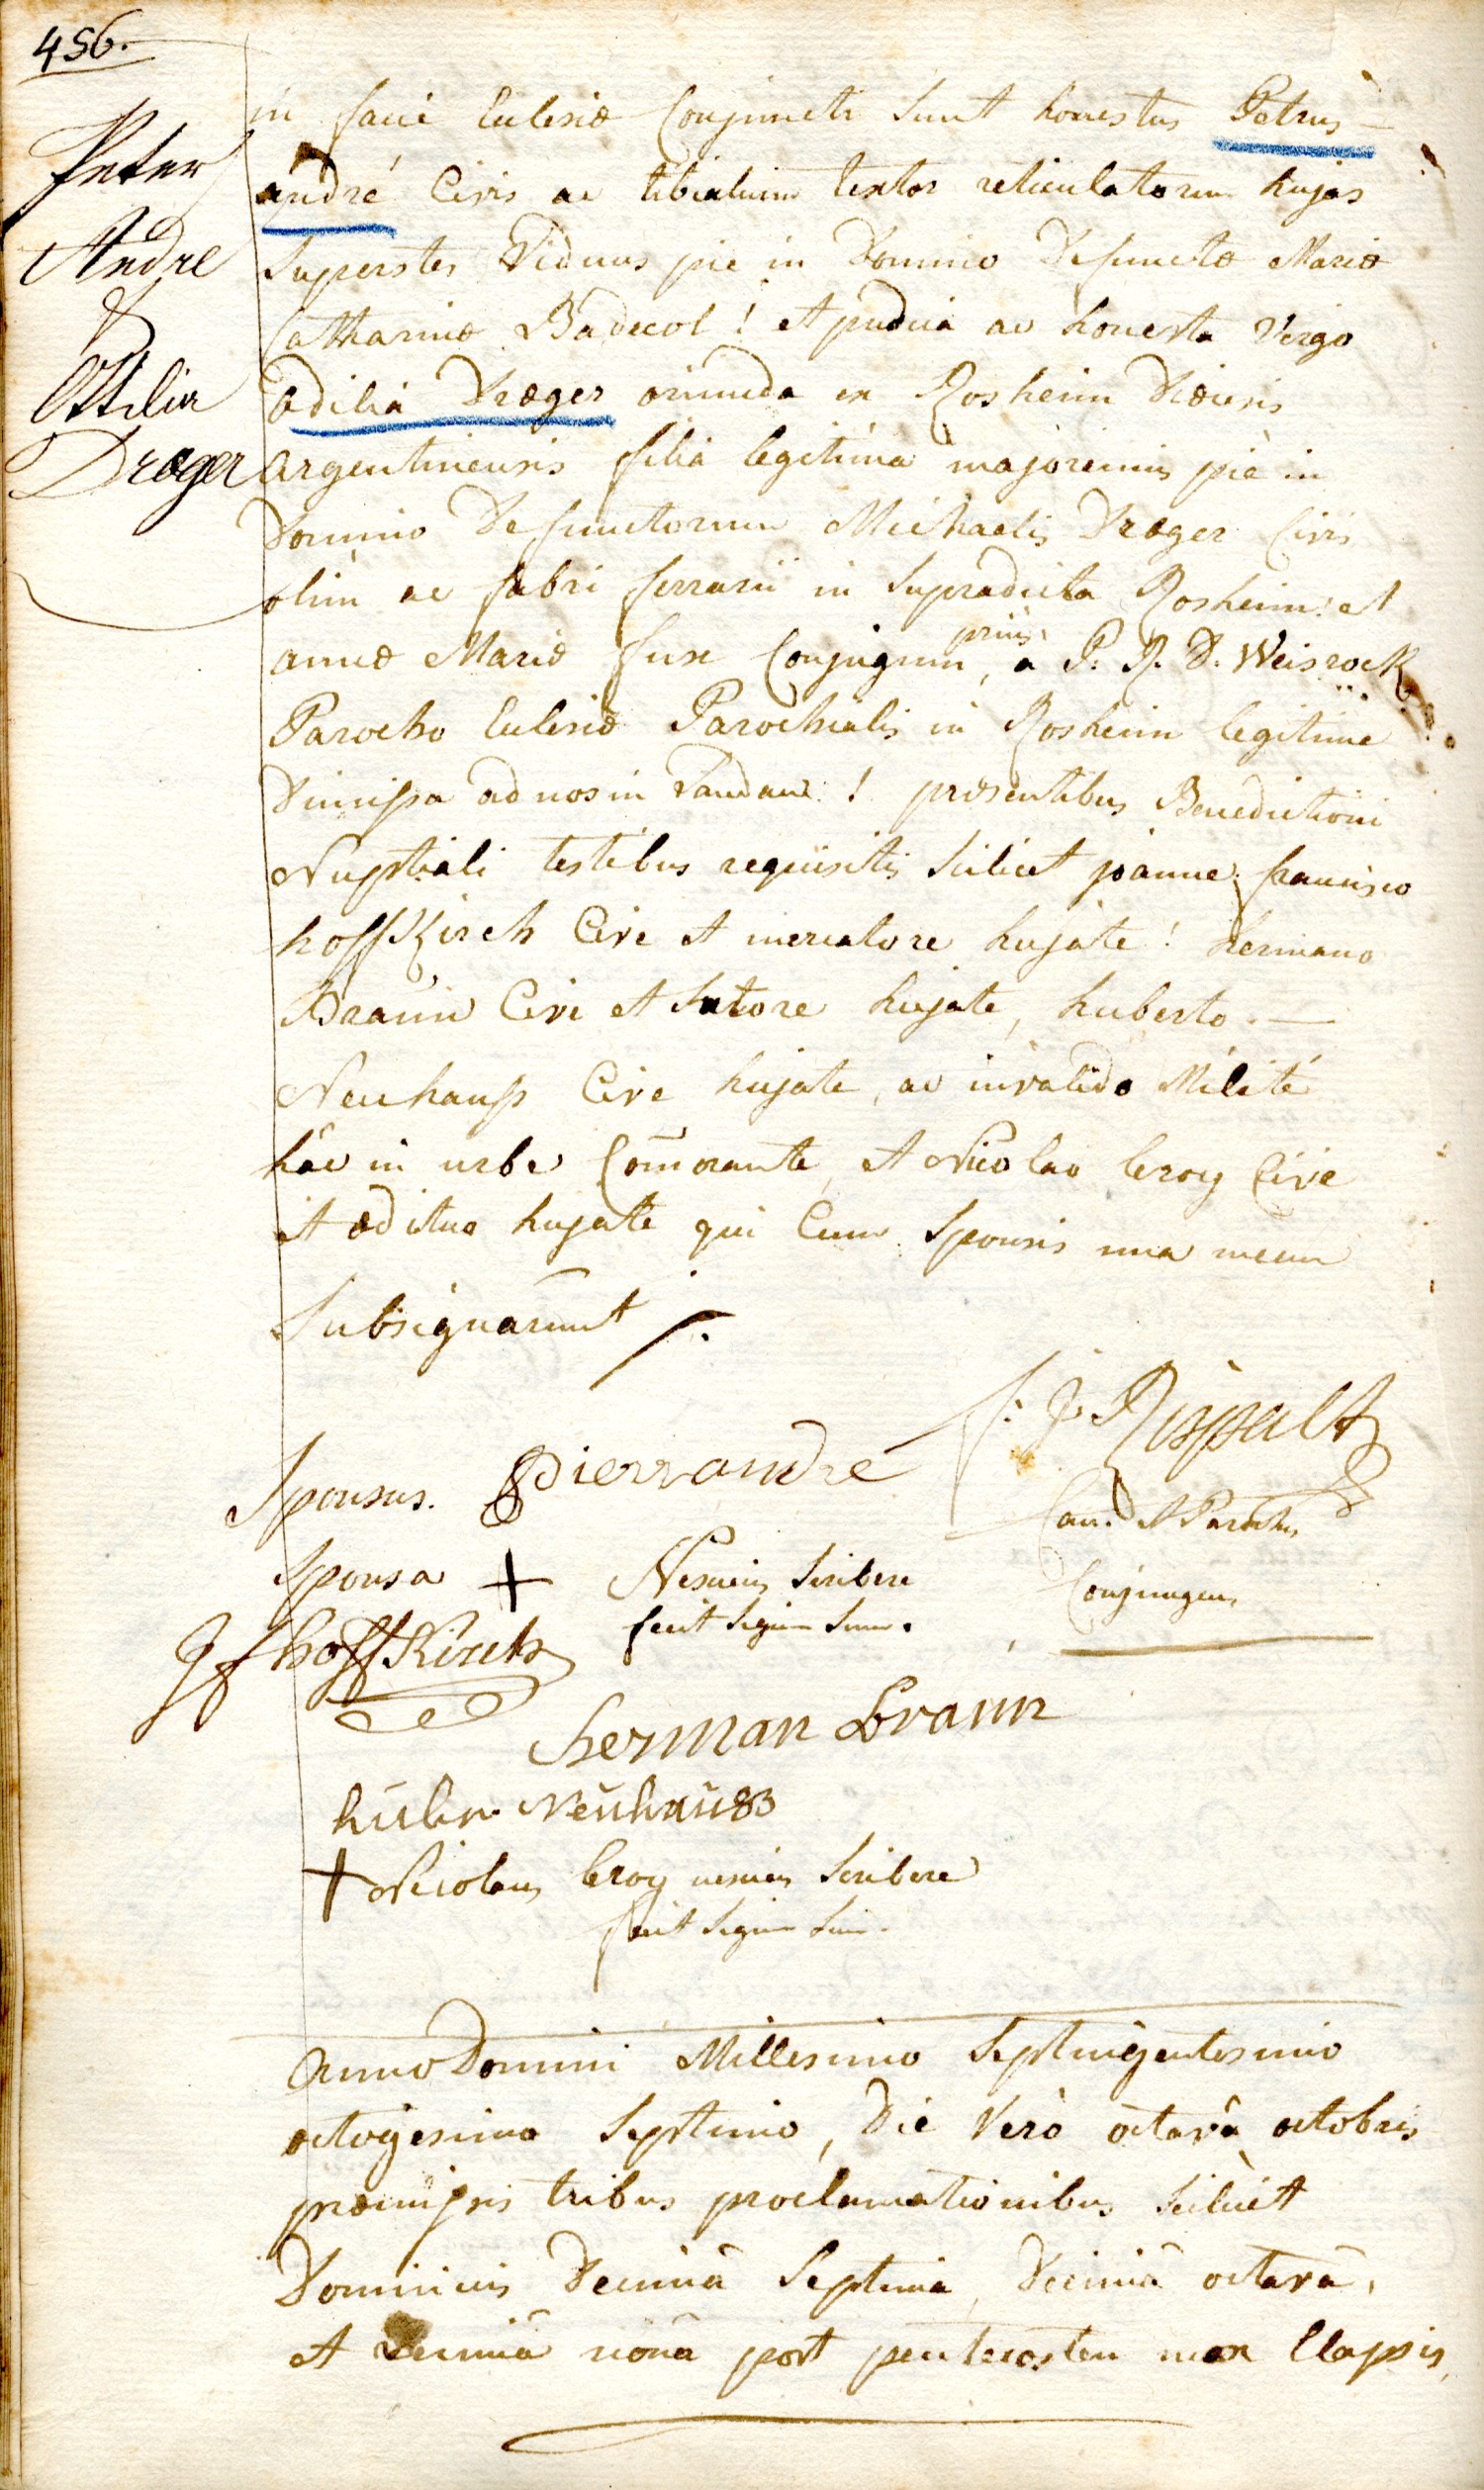 456.
Peter
Andre
&
Ottilia
Dræger
in facie Ecclesiæ Conjuncti Sunt honestus Petrus
andré Civis ac tibialium textor reticulatorum hujas
Superstes Viduus pie in Domino Defunctæ Mariæ
Catharinæ Badecol ! et pudica ac honesta Virgo
Odilia Dræger oriunda ex Rosheim Diœcesis
argentinensis filia legitima majorennis piè in
Domino Defunctorum Michaelis Dræger Civis
olim ac fabri ferrarii in Supradicta Rosheim et
annæ Mariæ fux Conjugum, priùs à P. R. D. Weisrock
Parocho Ecclesiæ Parochialis in Rosheim legitime
Dimissa ad nos in Landau ! præsentibus Benedictioni
Nuptiali testibus requisitis Scilicet joanne francisco
hoffKirch Cive et mercatore hujate ! hermano
Braun Cive et Sutore hujate, huberto
Neuhauss Cive hujate, ac invalido Milite
hâc in urbe Com̄orante, et Nicolao leroy Cive
et ædituo hujate qui Cum Sponsis una mecum
Subsignarunt ./.
Sponsus. Pierrandré
f: J: Rispalt
Can. et Parochus
Conjungens
Sponsa + Nesciens Scribere
fecit Signum Suum.
J f hoffKirch
Herman Braun
hubr. Neuhauss
+ Nicolaus leroy nesciens Scribere
fecit Signum Suum.
Anno Domini Millesimo Septingentesimo
octogesimo Septimo, Die Verò octavâ octobris
præmissis tribus proclamationibus Scilicet
Dominicis Decimâ Septimâ, Decimâ octavâ,
et Decimâ nonâ post pentecosten mox Elapsis,